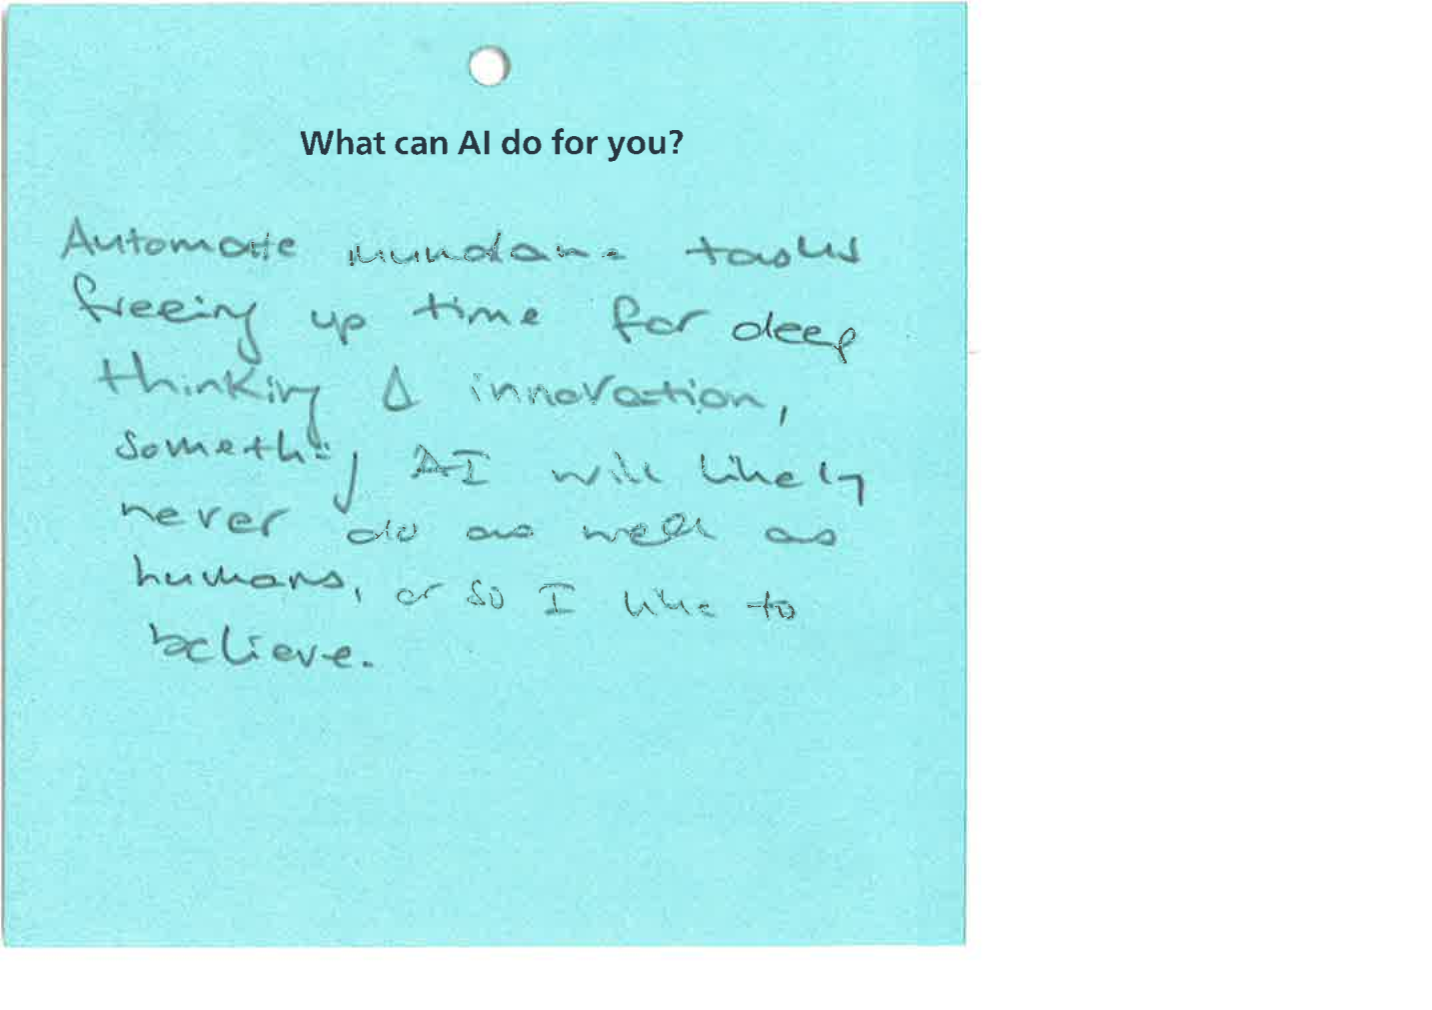 What can AI do for you?
Automate mundane tasks
freeing up time for deep
thinking & innovation,
something AI will likely
never do as well as
humans, or so I like to
believe.